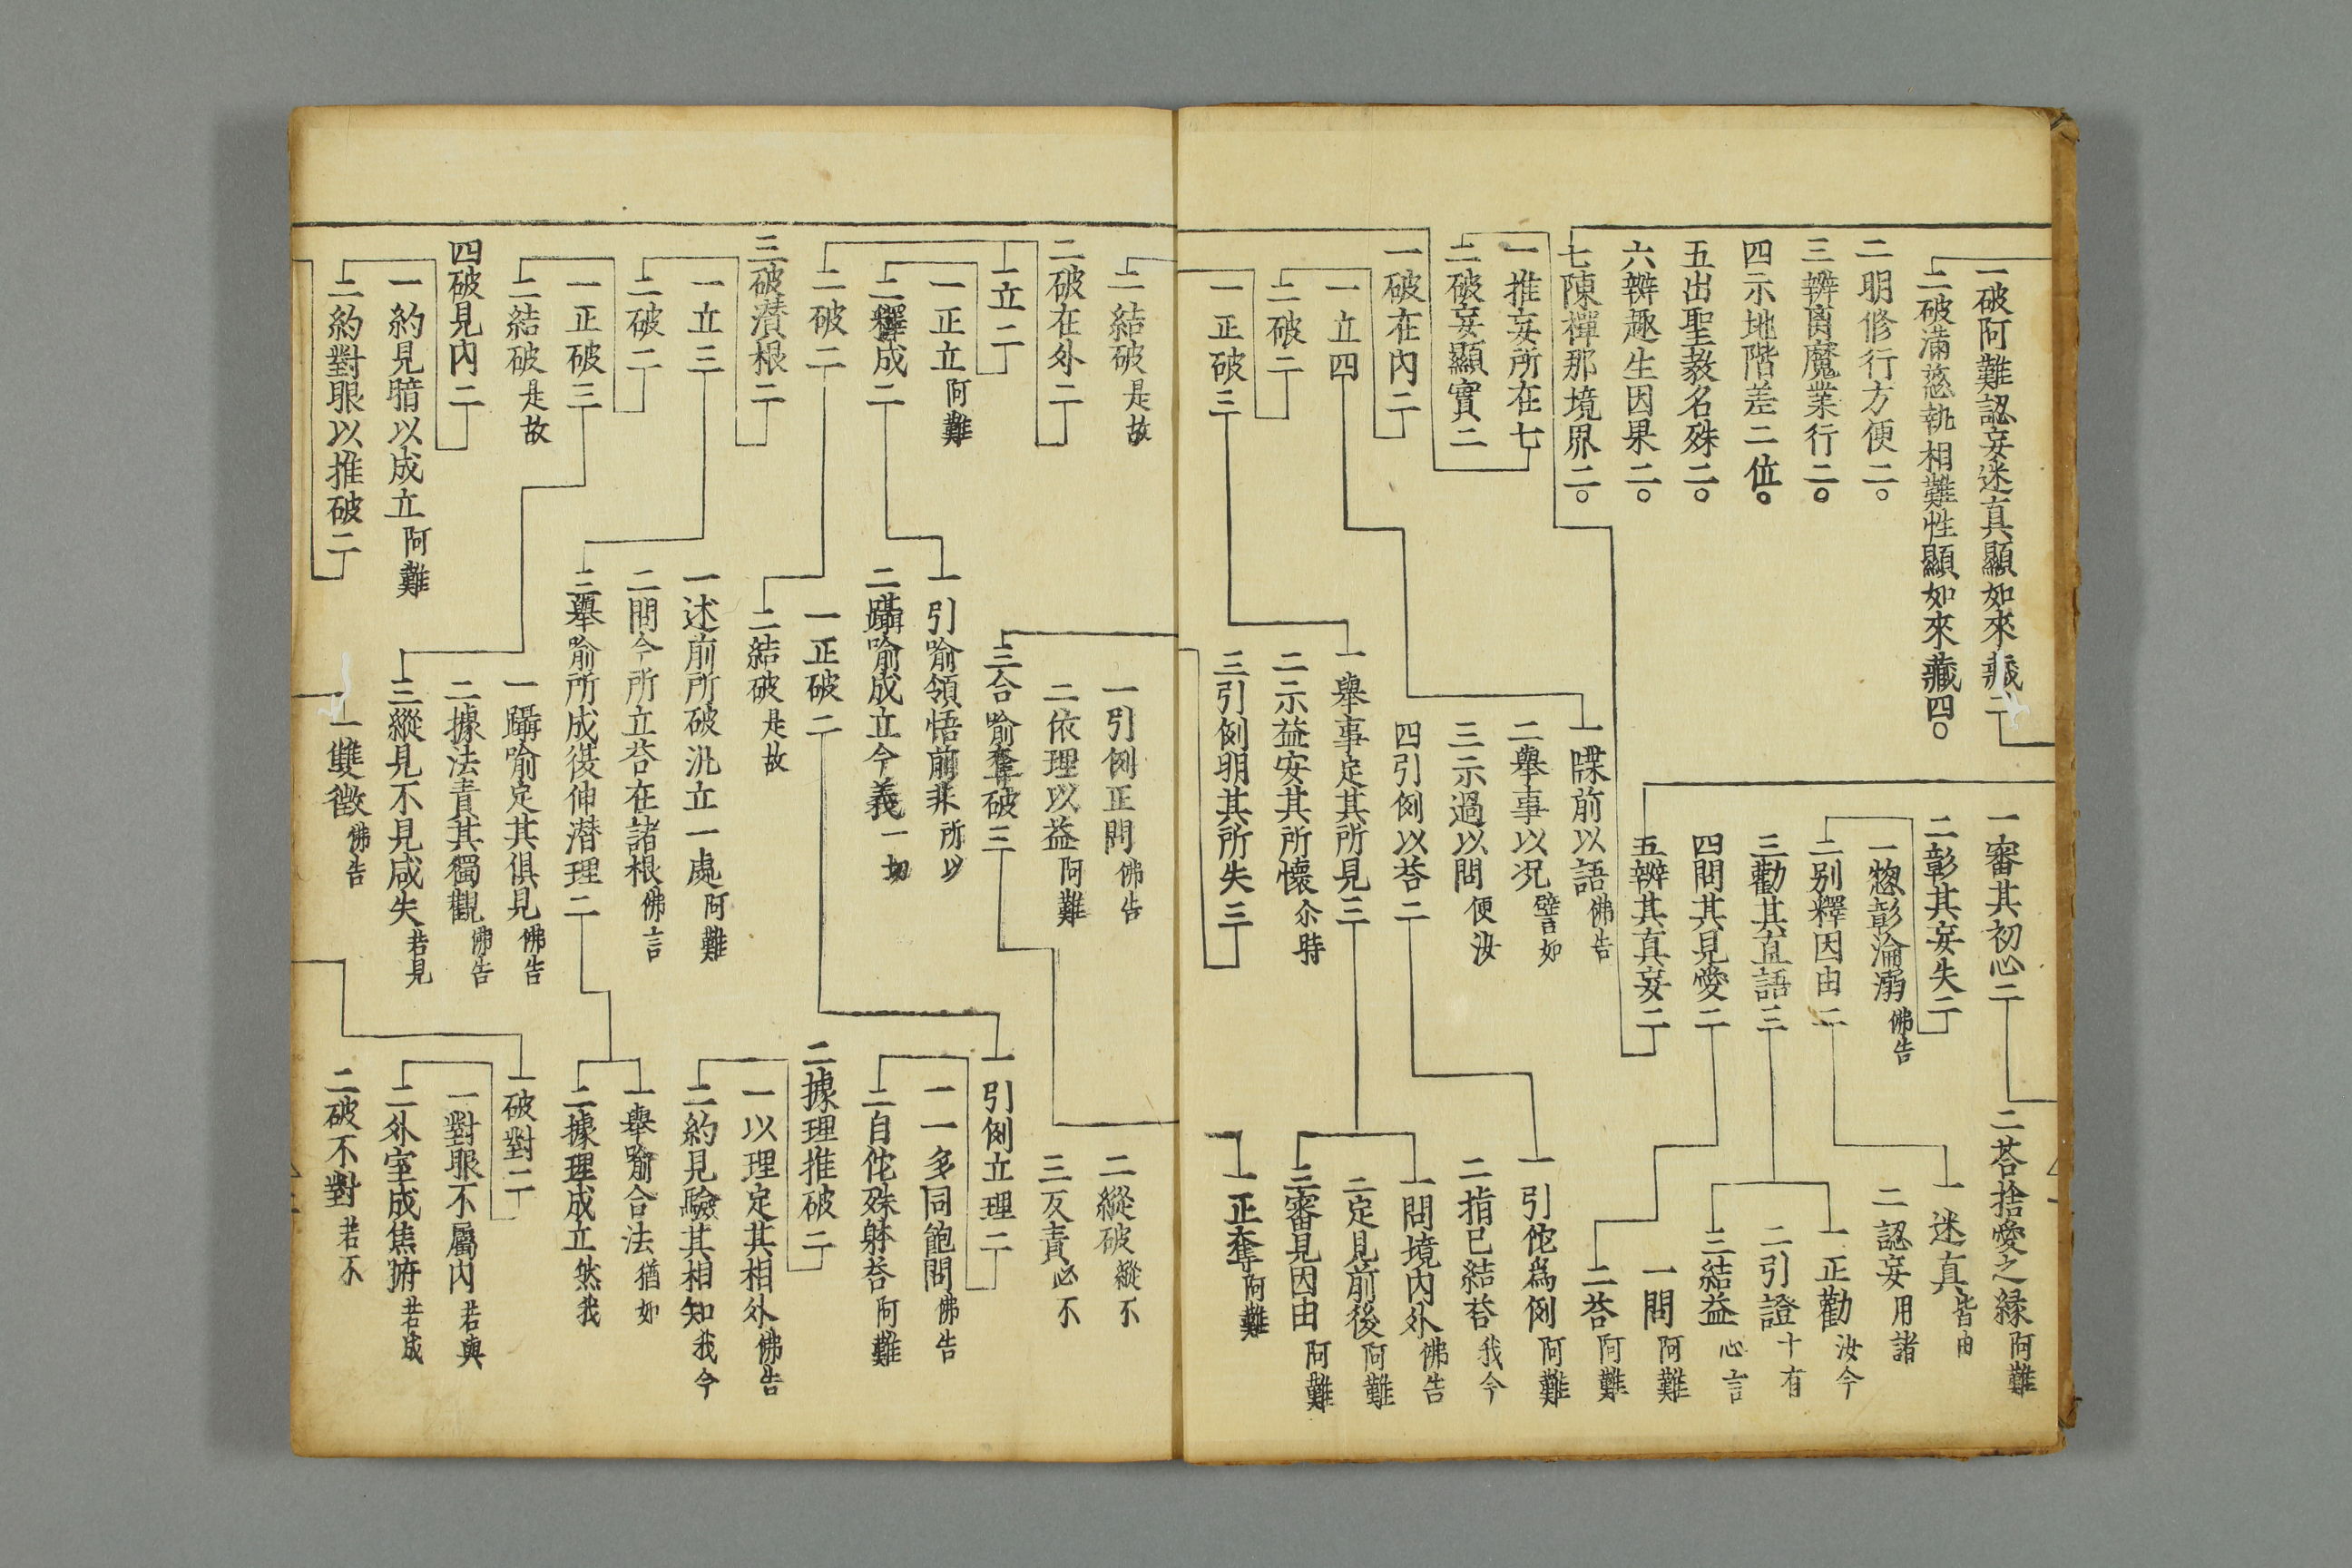 一破阿難認妄迷真顯如來藏二
二破滿慈執相難性顯如來藏四○
二明修行方便二○
三辨离魔業行二○
四示地階差二位○
五出聖教名殊二○
六辨趣生因果二○
七陳禪那境界二○
一推妄所在七
二破妄顯實二
一破在內二
一立四
二破二
一正破三
一審其初心二
二彰其妄失二
一惣彰淪溺佛告
二別釋因由二
三勸其直語三
四問其見愛二
五辨其真妄二
一牒前以語佛告
二舉事以况譬如
三示過以問便汝
四引例以荅二
一舉事定其所見三
二示益安其所懷尒時
三引例明其所失三
二荅捨愛之縁阿難
一迷真皆由
二認妄用諸
一正勸汝今
二引證十有
三結益心言
一問阿難
二荅阿難
一引佗為例阿難
二指已結荅我今
一問境內外佛告
二定見前後阿難
三審見因由阿難
一正奪阿難
二結破是故
二破在外二
一立二
一正立阿難
二釋成二
二破二
三破潜根二
一立三
二破二
一正破三
二結破是故
四破見內二
一約見暗以成立阿難
二約對眼以推破二
一引例正問佛告
二依理以益阿難
三合喻奪破三
一引喻領悟前非所以
二躡喻成立今義一切
一正破二
二結破是故
一述前所破泚立一處阿難
二問今所立荅在諸根佛言
三舉喻所成徔伸潜理二
一躡喻定其俱見佛告
二據法責其獨觀佛告
三縱見不見咸失若見
一雙徵佛告
二縱破縱不
三反責必不
一引例立理二
一一多同飽問佛告
二自佗殊躰荅阿難
二據理推破二
一以理定其相外佛告
二約見驗其相知我今
一舉喻合法猶如
二據理成立然我
一破對二
一對眼不屬內若與
二外室成焦腑若成
二破不對若不